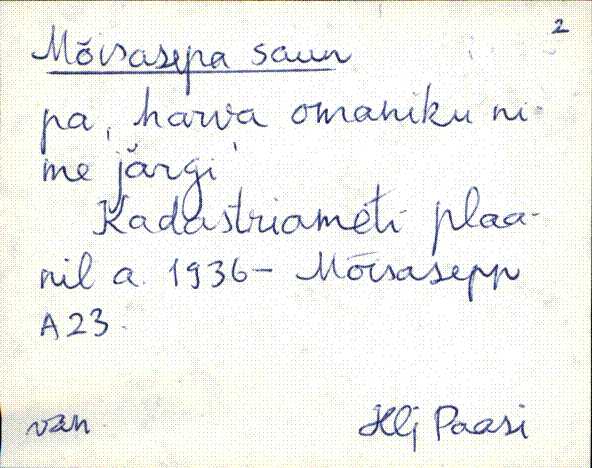 2
Mõisasepa saun
pa, harva omaniku ni-
me järgi
Kadastriameti plaa-
nil a. 1936 - Mõisasepp
A23.
van Hlj Paasi